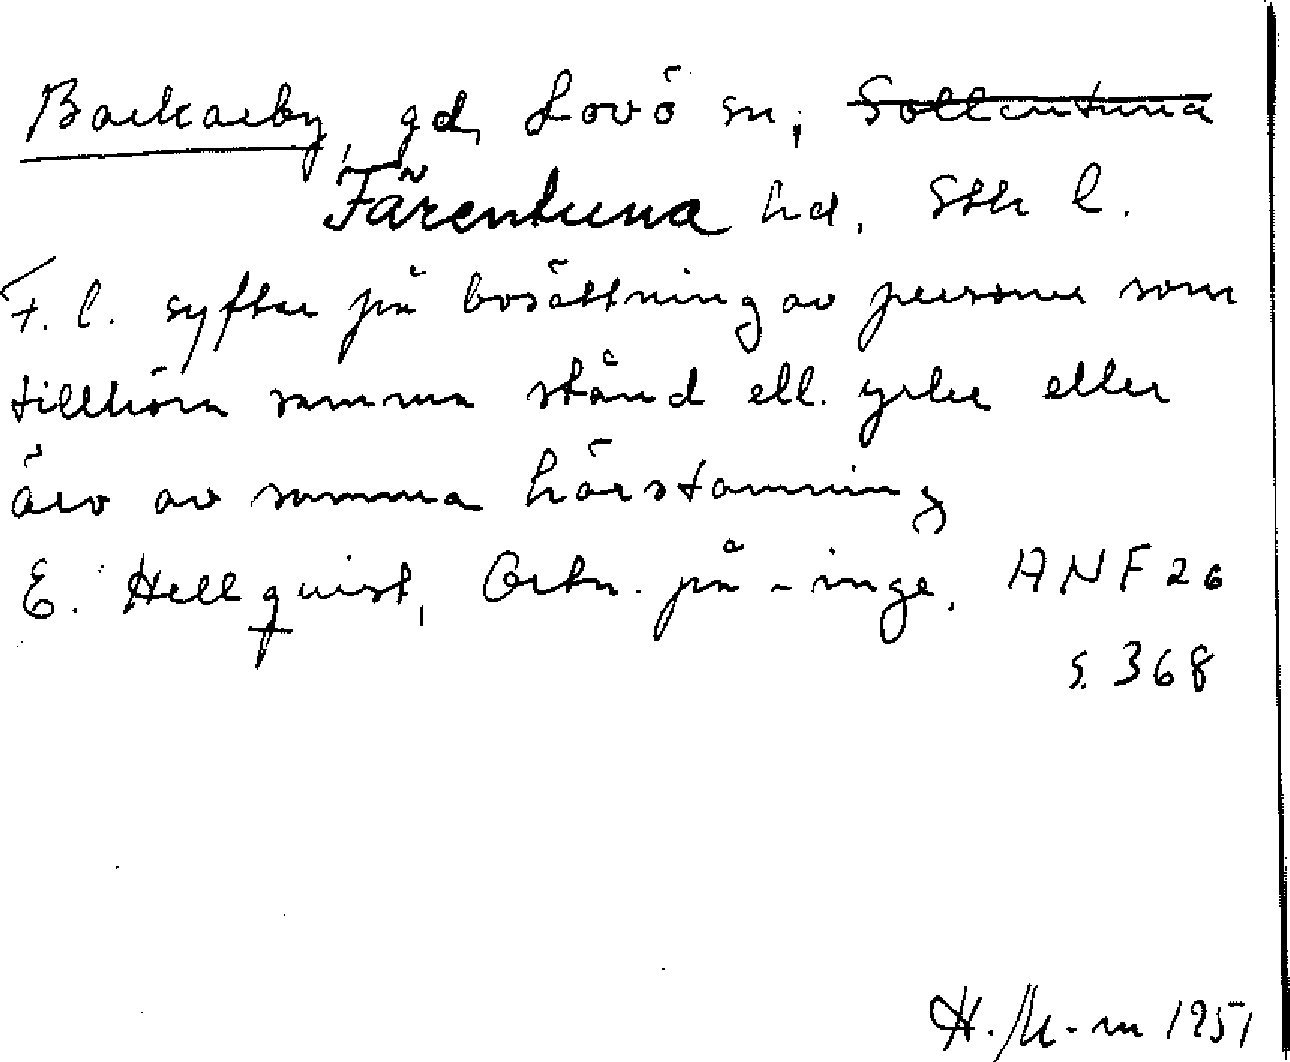 Backarby, gd, Lovö sn, Sollentuna
Färentuna hd, Sth l.
F. l. syftar på bosättning av personer som
tillhöra samma stånd ell. yrke eller
äro av samma härstamning
E. Hellquist, Ortn. på -inge, ANF 26
s. 368
H. M-m 1951